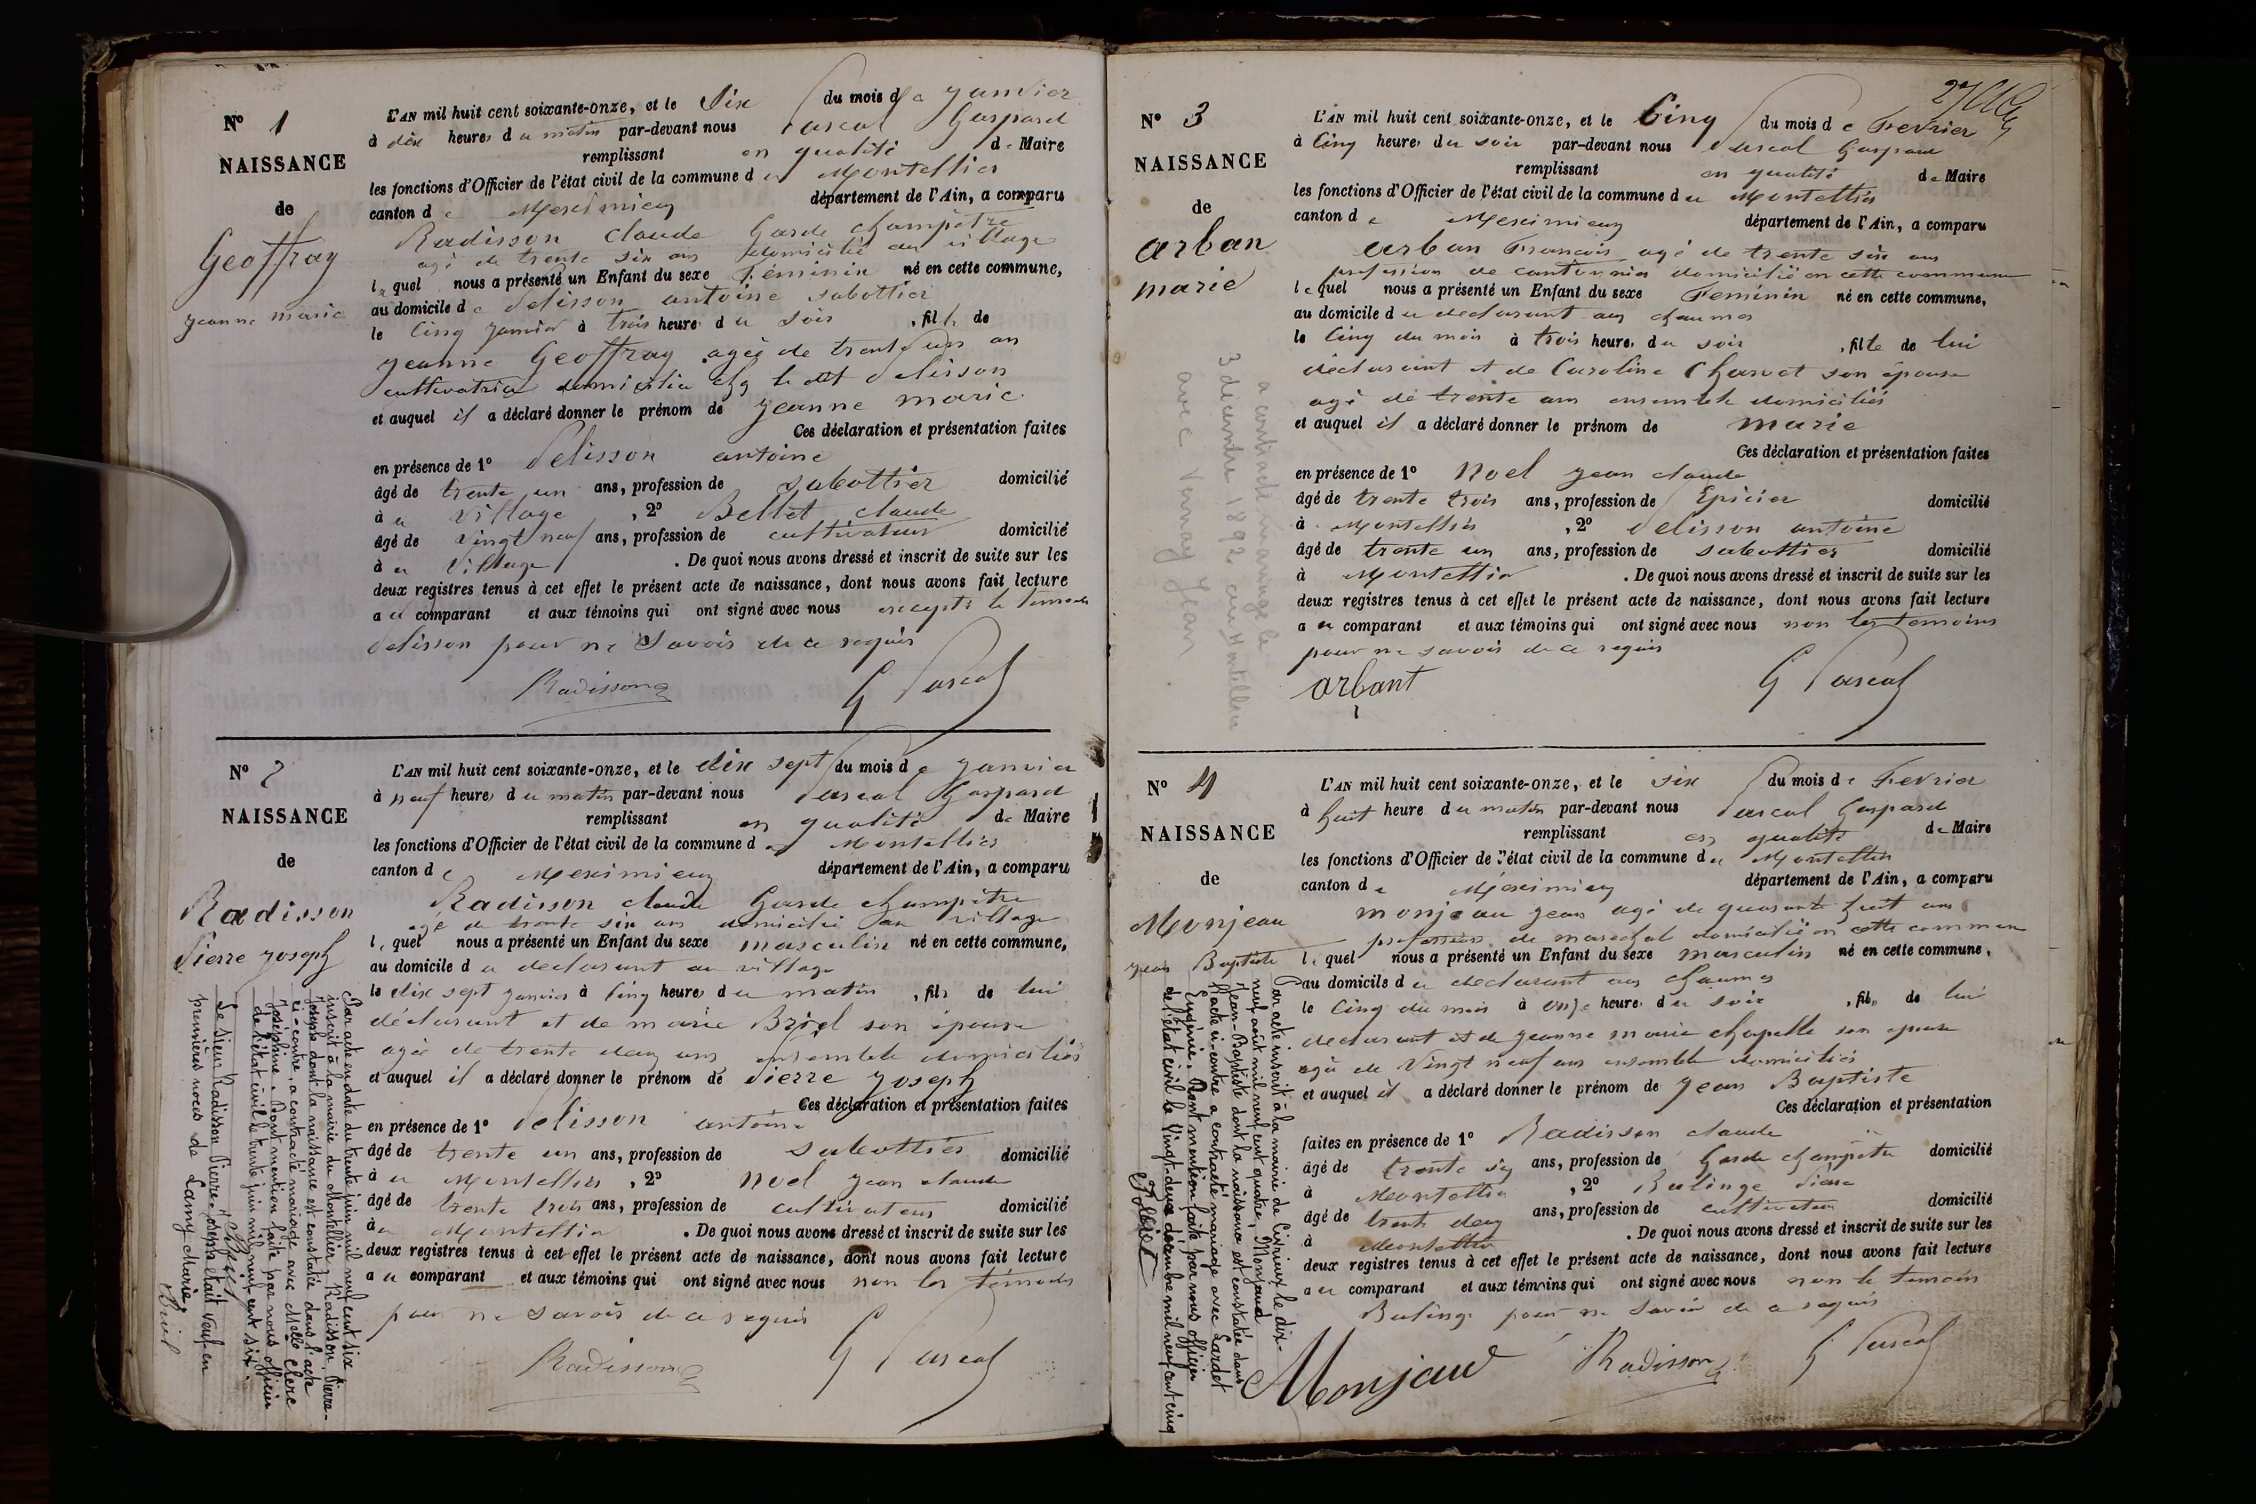 N° 1
NAISSANCE
de
Geoffray
jeanne marie
L'AN mil huit cent soixante-onze, et le Six du mois de janvier
à dix heures du matin par-devant nous Pascal Gaspard
remplissant en qualité de Maire
les fonctions d'Officier de l'état civil de la commune de Montellier
canton de Meximieux département de l'Ain, a comparu
Radisson claude Garde champêtre
agé de trente six ans domicilié au village
lequel nous a présenté un Enfant du sexe Féminin né en cette commune,
au domicile de Pelisson antoine sabottier
le Cinq janvier à trois heure du soir, fille de
jeanne Geoffray agée de trente un an
cultivatrice domiciliée chez le dit Pelisson
et auquel il a déclaré donner le prénom de jeanne marie
Ces déclaration et présentation faites
en présence de 1° Pelisson antoine
âgé de trente un ans, profession de sabottier domicilié
à au village, 2° Bellet claude
âgé de vingt neuf ans, profession de cultivateur domicilié
à au village. De quoi nous avons dressé et inscrit de suite sur les
deux registres tenus à cet effet le présent acte de naissance, dont nous avons fait lecture
au comparant et aux témoins qui ont signé avec nous excepté le temoin
Pelisson pour ne savoir de ce requis
Radisson G Pascal
N° 2
NAISSANCE
de
Radisson
Pierre joseph
L'AN mil huit cent soixante-onze, et le dix sept du mois de janvier
à neuf heures du matin par-devant nous Pascal Gaspard
remplissant en qualité de Maire
les fonctions d'Officier de l'état civil de la commune de Montellier
canton de Meximieux département de l'Ain, a comparu
Radisson claude Garde champêtre
agé de trente six ans domicilié au village
lequel nous a présenté un Enfant du sexe masculin né en cette commune,
au domicile du declarant au village
le dix sept janvier à Cinq heures du matin, fils de lui
déclarant et de marie son épouse
agée de trente deux ans ensemble domiciliés
et auquel il a déclaré donner le prénom de Pierre joseph
Ces déclaration et présentation faites
en présence de 1° Pelisson antoine
âgé de trente un ans, profession de sabottier domicilié
à au Montellier, 2° noël jean claude
âgé de trente trois ans, profession de cultivateur domicilié
à au Montellier. De quoi nous avons dressé et inscrit de suite sur les
deux registres tenus à cet effet le présent acte de naissance, dont nous avons fait lecture
au comparant et aux témoins qui ont signé avec nous non les témoins
pour ne savoir de ce requis
Radisson G Pascal
Par acte en date du trente juin mil neuf cent six
inscrit à la mairie du Montellier, Radisson, Pierre-
Joseph dont la naissance est constatée dans l'acte
ci-contre, a contracté mariage avec Melle Clerc
Joséphine. Dont mention faite par nous officier
de l'état civil le trente juin mil neuf cent six.
Le sieur Radisson Pierre-Joseph était veuf en
premières noces de Lamy Marie.
N° 3
NAISSANCE
de
arban
marie
L'AN mil huit cent soixante-onze, et le Cinq du mois de Fevrier
à Cinq heures du soir par-devant nous Pascal Gaspard
remplissant en qualité de Maire
les fonctions d'Officier de l'état civil de la commune du Montellier
canton de Meximieux département de l'Ain, a comparu
arban Francois agé de trente six ans
profession de cantonnier domicilié en cette commune
lequel nous a présenté un Enfant du sexe Feminin né en cette commune,
au domicile du declarant aux chaumes
le Cinq du mois à trois heures du soir, fille de lui
déclarant et de Caroline Charvet son épouse
agé de trente ans ensemble domiciliés
et auquel il a déclaré donner le prénom de marie
Ces déclaration et présentation faites
en présence de 1° Noel jean claude
âgé de trente trois ans, profession de Epicier domicilié
à Montellier, 2° Pelisson antoine
âgé de trente un ans, profession de sabottier domicilié
à Montellier. De quoi nous avons dressé et inscrit de suite sur les
deux registres tenus à cet effet le présent acte de naissance, dont nous avons fait lecture
au comparant et aux témoins qui ont signé avec nous non les temoins
pour ne savoir de ce requis
arbant G Pascal
a contracté mariage le
3 décembre 1892 au Montellier
avec Vernay Jean
N° 4
NAISSANCE
de
Monjeau
jean Baptiste
L'AN mil huit cent soixante-onze, et le six du mois de Fevrier
à huit heure du matin par-devant nous Pascal Gaspard
remplissant en qualité de Maire
les fonctions d'Officier de l'état civil de la commune du Montellier
canton de Meximieux département de l'Ain, a comparu
monjeau jean agé de quarante huit ans
profession de marechal domicilié en cette commune
lequel nous a présenté un Enfant du sexe masculin né en cette commune,
au domicile du declarant aux chaumes
le Cinq du mois à onze heure du soir, fils de lui
declarant et de jeanne marie chapelle son épouse
agée de vingt neuf ans ensemble domiciliés
et auquel il a déclaré donner le prénom de jean Baptiste
Ces déclaration et présentation
faites en présence de 1° Radisson claude
âgé de trente six ans, profession de Garde champêtre domicilié
à Montellier, 2° Bulinge Pierre
âgé de trente deux ans, profession de cultivateur domicilié
à Montellier. De quoi nous avons dressé et inscrit de suite sur les
deux registres tenus à cet effet le présent acte de naissance, dont nous avons fait lecture
au comparant et aux témoins qui ont signé avec nous non le temoin
Bulinge pour ne savoir de ce requis
Monjaud Radisson G Pascal
Par acte inscrit à la mairie de Civrieux le dix-
neuf août mil neuf cent quatre, Monjaud
Jean-Baptiste dont la naissance est constatée dans
l'acte ci-contre a contracté mariage avec Lardet
Eugénie. Dont mention faite par nous officier
de l'état civil le vingt-deux décembre mil neuf cent cinq